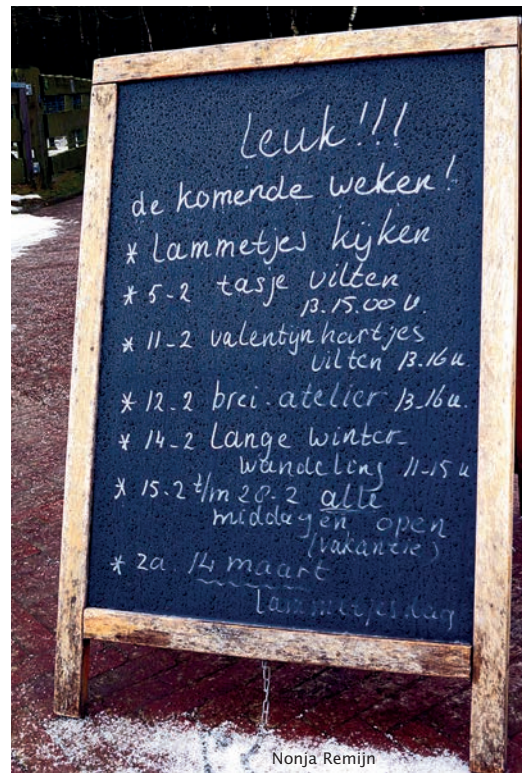 leuk!!!
de komende weken!
* lammetjes kijken
* 5-2 tasje vilten
13.15.00 u.
* 11-2 valentynhartjes
vilten 13.16u.
* 12-2 brei-atelier 13-16u.
* 14-2 lange winter-
wandeling 11-15 u
* 15-2 t/m 28-2 alle
middagen open
(vakantie)
* za. 14 maart
lammetjesdag
Nonja Remijn